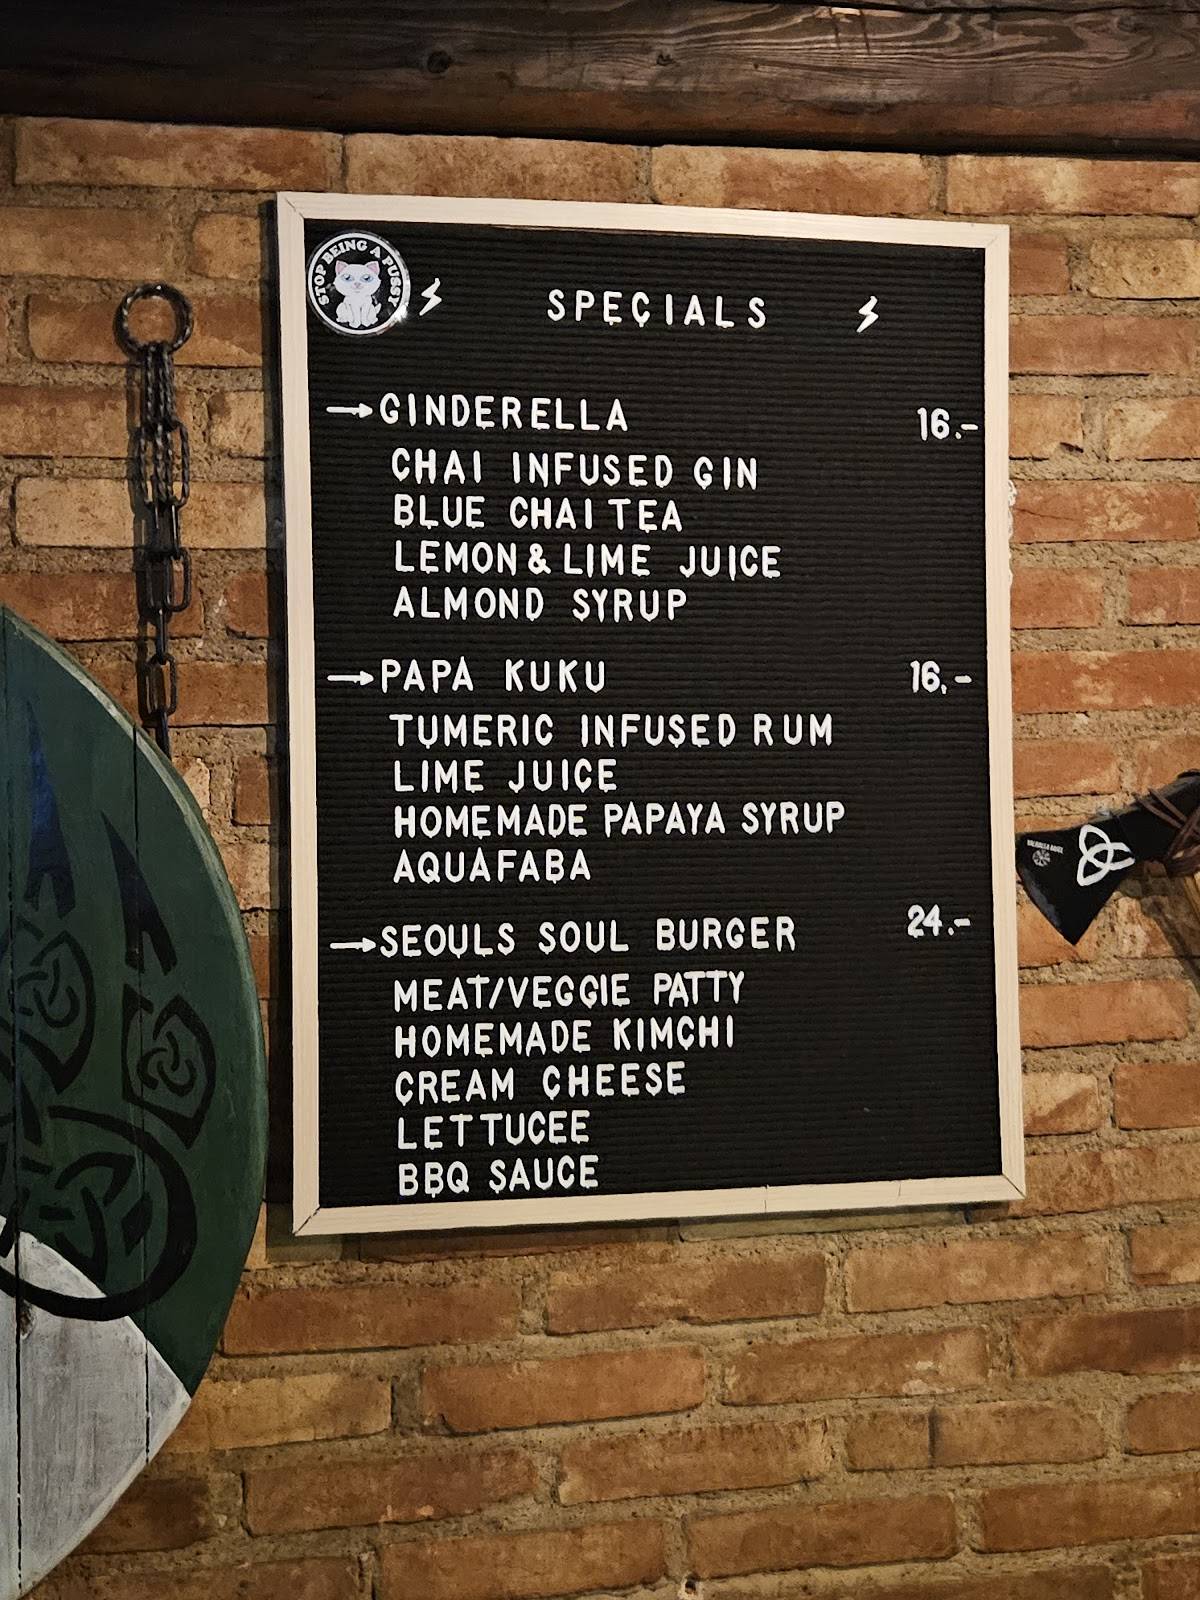 STOP BEING A PUSSY
SPECIALS
GINDERELLA 16.-
CHAI INFUSED GIN
BLUE CHAI TEA
LEMON & LIME JUICE
ALMOND SYRUP
PAPA KUKU 16.-
TUMERIC INFUSED RUM
LIME JUICE
HOMEMADE PAPAYA SYRUP
AQUAFABA
SEOULS SOUL BURGER 24.-
MEAT/VEGGIE PATTY
HOMEMADE KIMCHI
CREAM CHEESE
LETTUCEE
BBQ SAUCE